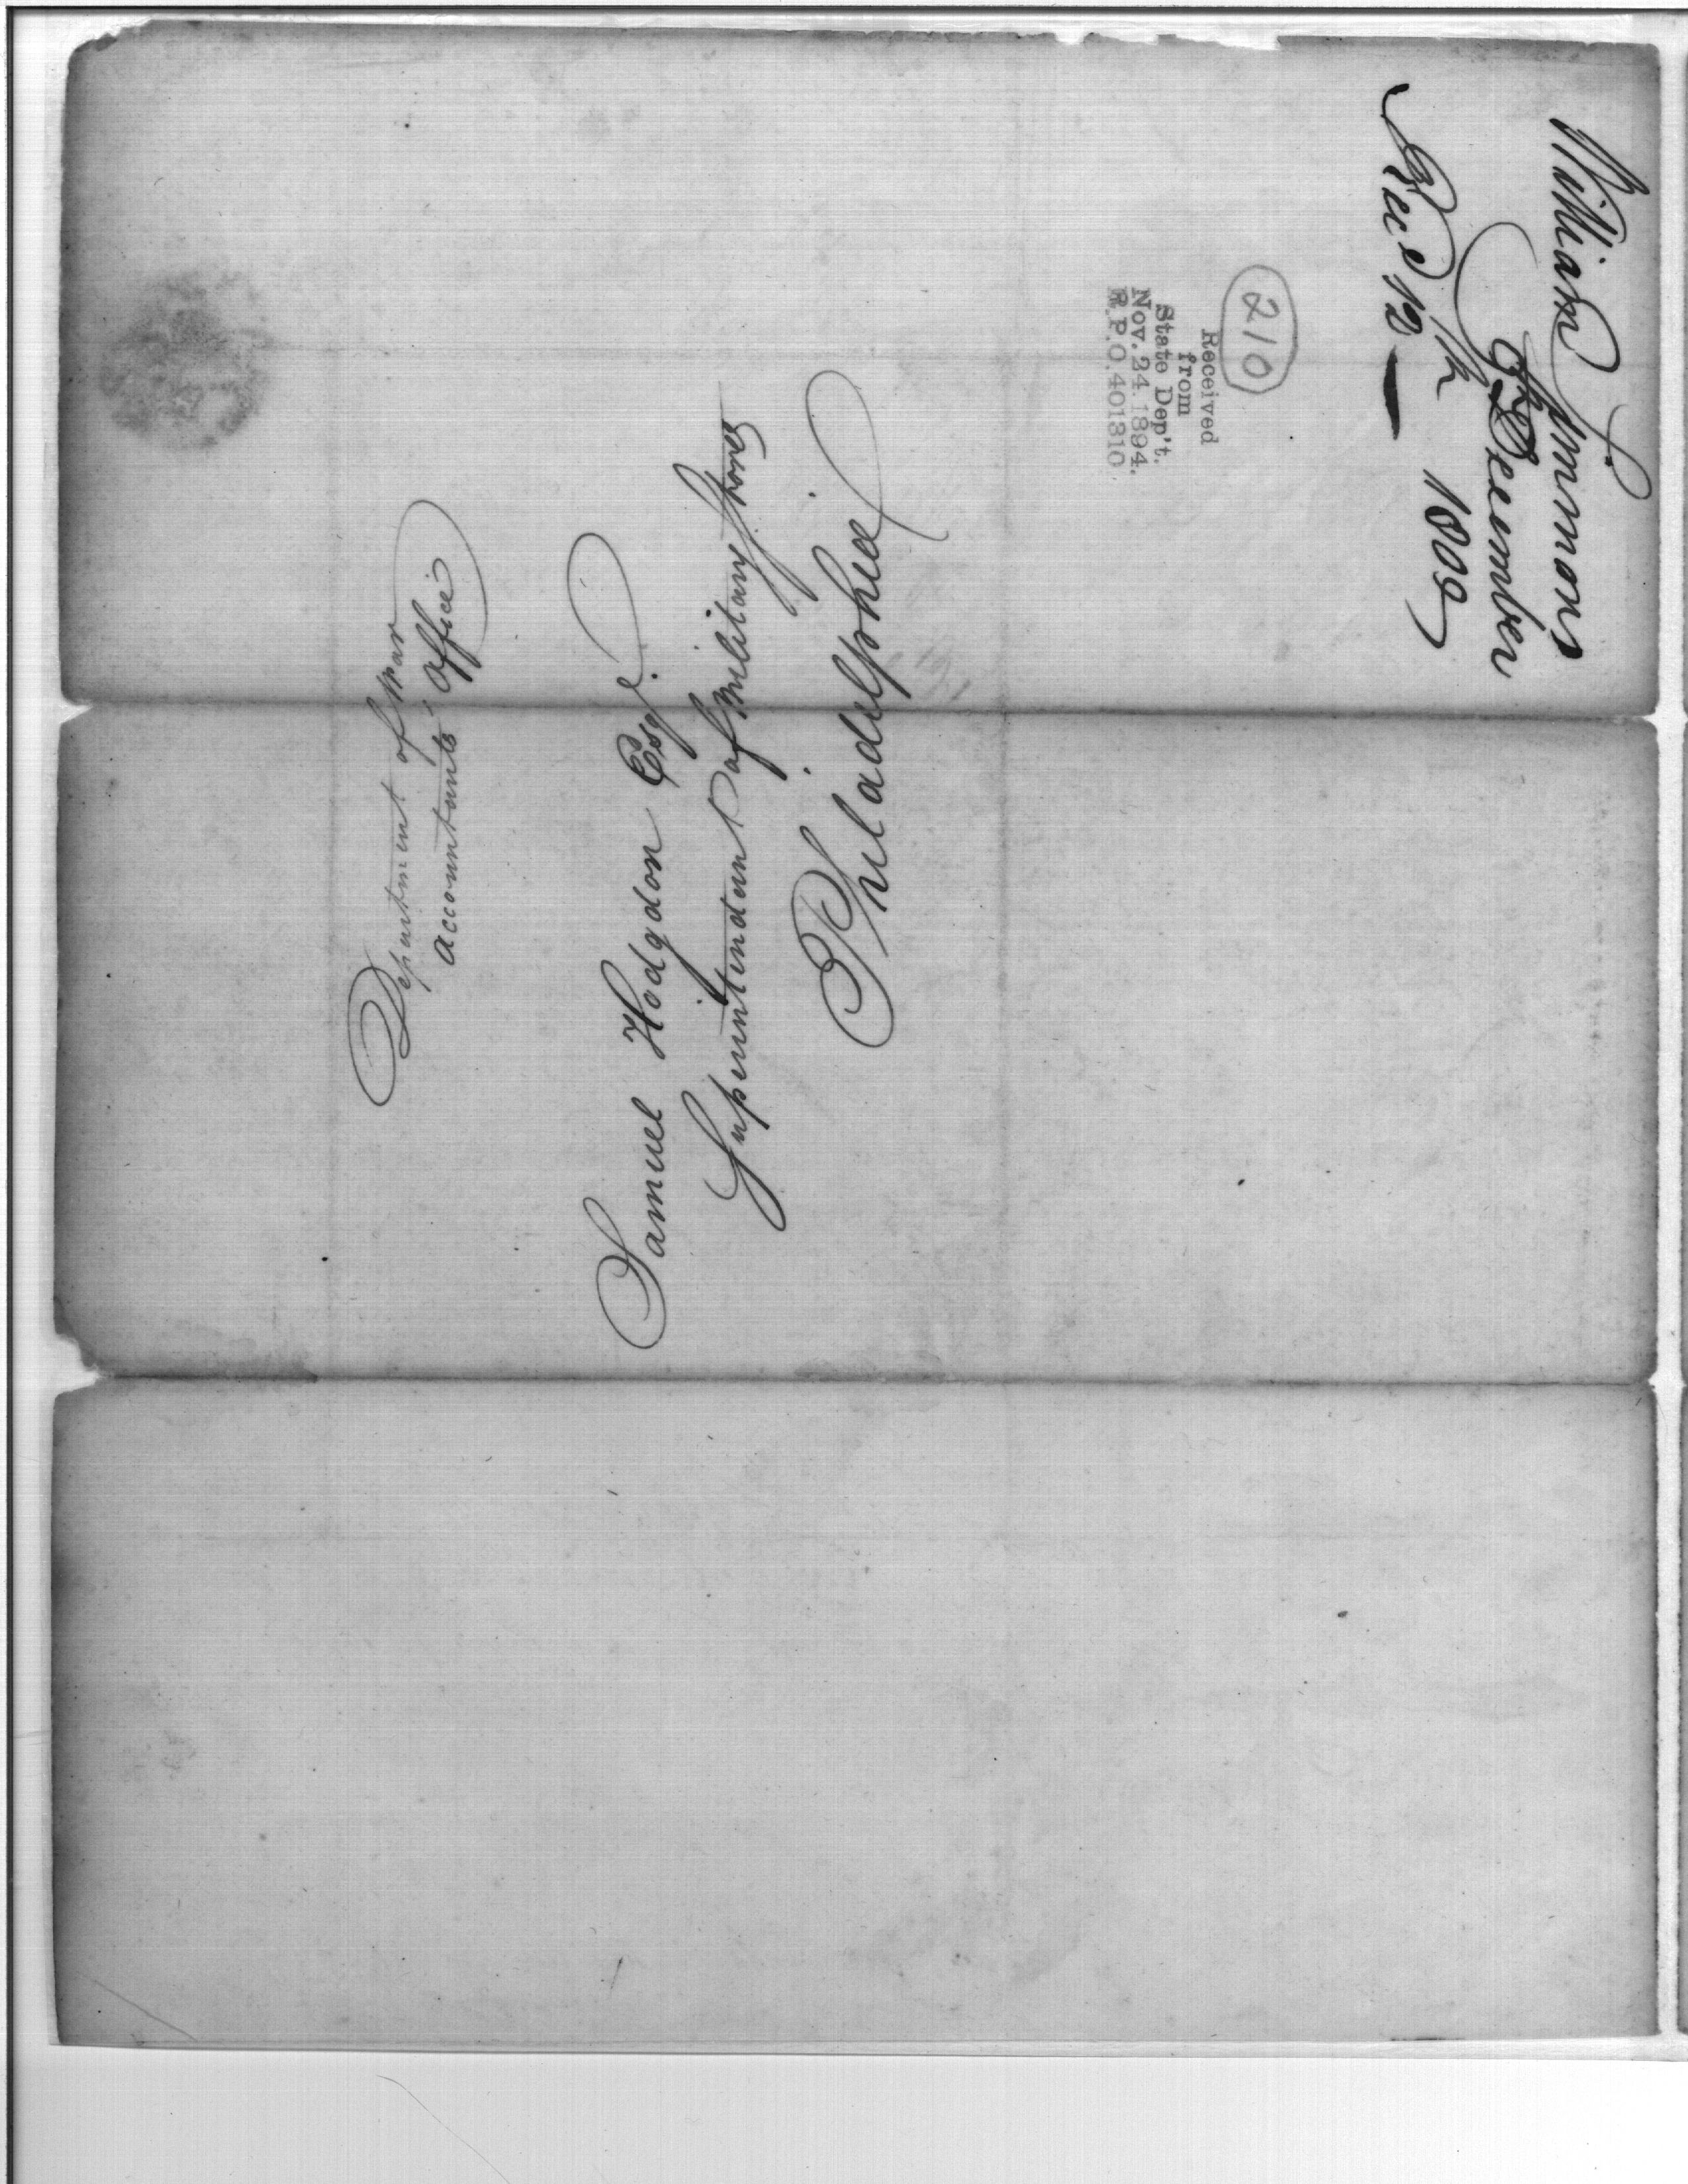 William Simmons
8th December
1800
Rec'd 12th
210
Received
from
State Dep't.
Nov. 24. 1894.
R.P.O. 401310
Department of War
Accountants Office
Samuel Hodgdon Esqr.
Superintendant of Military Stores
Philadelphia